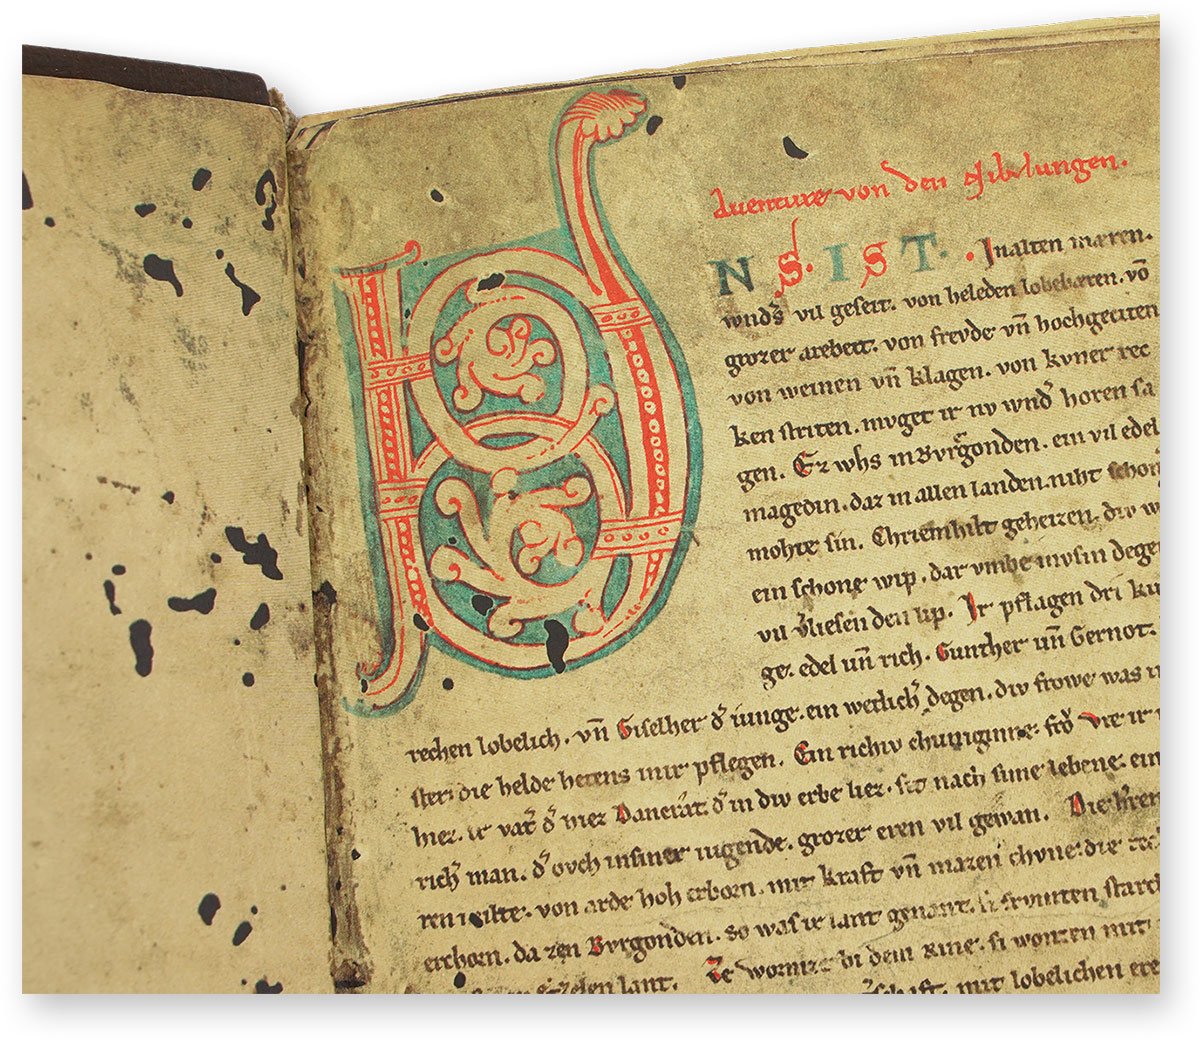 Auenture von den Nibelungen.
U
NS. IST. Inalten mæren.
wnd's vil geseit. von heleden lobebæren. võ
grozer arebeit. von frevde vñ hochgeciten
von weinen vñ klagen. von kvner rec
ken striten. mvget ir nv wnd' horen sa
gen. Ez whs inBvrgonden. ein vil edel
magedin. daz in allen landen niht schon
mohte sin. Chriemhilt geheizen. div w
ein schone wip. dar vmbe mvsin degen
vil v'liesen den lip. Ir pflagen dri kv
ge. edel uñ rich. Gunther uñ Gernot.
rechen lobelich. vñ Giselher d' iunge. ein wetlich' degen. div frowe was ir
ster. die helde hetens inir pflegen. Ein richiv chuniginne. frŏ Vte ir
hiez. ir vat' d' hiez Dancrat. d' in div erbe liez. sit nach sime lebene. ein
rich' man. d' ovch insiner iugende. grozer eren vil gewan. Die h'ren
ren milte. von arde hoh erborn. mit kraft vñ mazen chvne. die
erchorn. da zen Bvrgonden. so was ir lant genant. si frvmten starch
lant. Ze Wormze bi dem Rine. si wonten mit
mit lobelichen ere